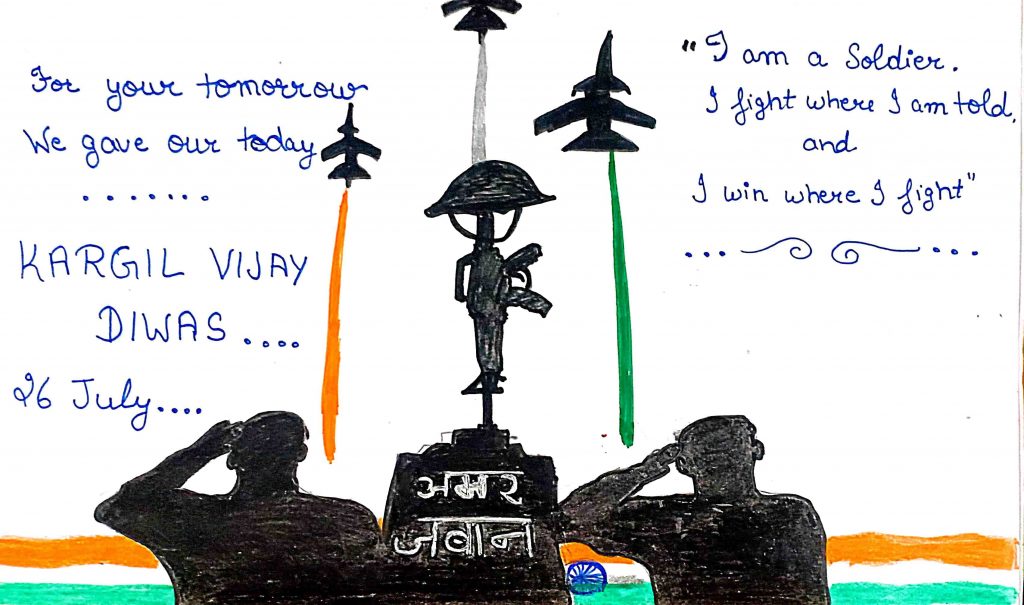 For your tomorrow
We gave our today
.......
KARGIL VIJAY
DIWAS ....
26 July....
"I am a Soldier.
I fight where I am told,
and
I win where I fight"
... ...
अमर
जवान